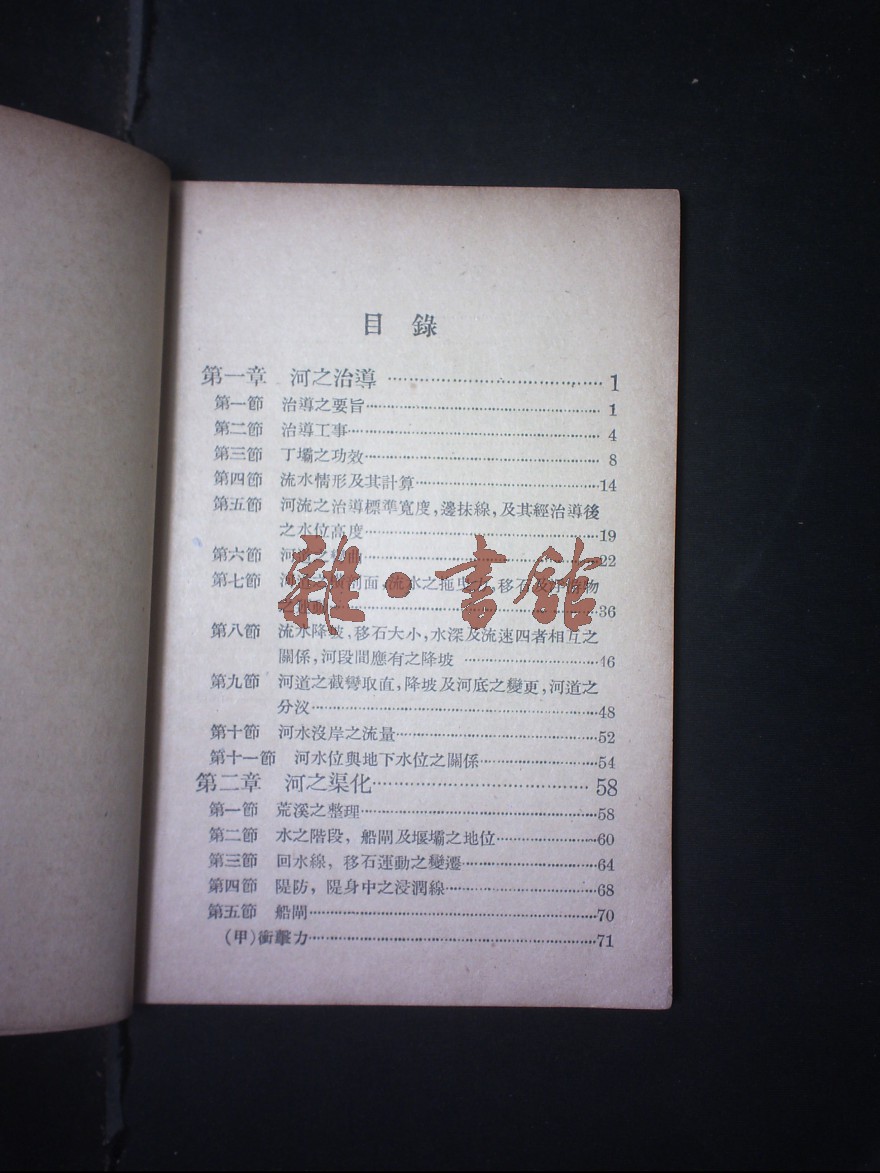 目錄
第一章 河之治導 1
第一節 治導之要旨 1
第二節 治導工事 4
第三節 丁壩之功效 8
第四節 流水情形及其計算 14
第五節 河流之治導標準寬度,邊抹線,及其經治導後
之水位高度 19
第六節 河 之彎曲 22
第七節 河道之 剖面,流水之拖曳力,移石及 物
之 36
第八節 流水降坡,移石大小,水深及流速四者相互之
關係,河段間應有之降坡 46
第九節 河道之截彎取直,降坡及河底之變更,河道之
分汊 48
第十節 河水沒岸之流量 52
第十一節 河水位與地下水位之關係 54
第二章 河之渠化 58
第一節 荒溪之整理 58
第二節 水之階段,船閘及堰壩之地位 60
第三節 回水線,移石運動之變遷 64
第四節 隄防,隄身中之浸潤線 68
第五節 船閘 70
(甲)衝擊力 71
雜·書館